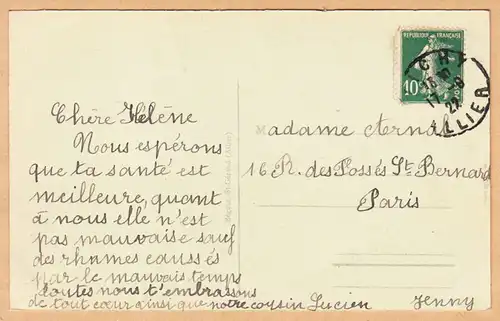 REPUBLIQUE FRANÇAISE
10
17 - 9
22
ALLIER
Chère Hélène
Nous espérons
que ta santé est
meilleure, quant
à nous elle n'est
pas mauvaise sauf
des rhumes caussés
par le mauvais temps
toutes nous t'embrassons
de tout cœur ainsi que notre cousin Lucien Jenny
Madame Arnal
16 R. des Fossés St Bernard
Paris